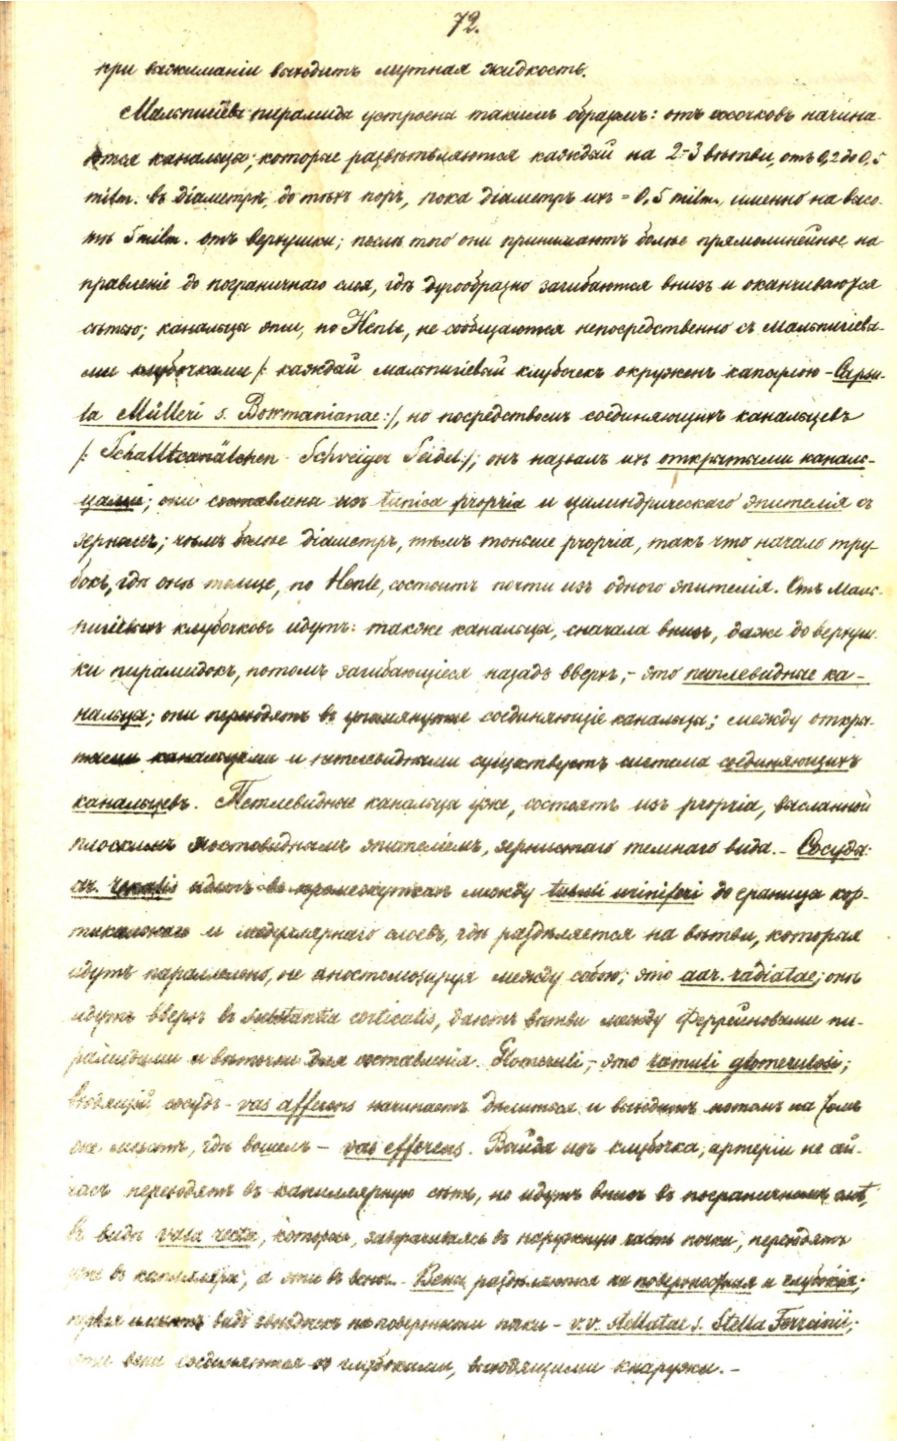 72.
при выжиманіи выходитъ мутная жидкость.
Мальпигіева пирамида устроена такимъ образомъ: отъ сосочковъ начина-
ются канальцы; которые развѣтвляются каждый на 2-3 вѣтви, отъ 0,2 до 0,5
milm. въ діаметрѣ, до тѣхъ поръ, пока діаметръ ихъ = 0,5 milm., именно на высо-
тѣ 5 milm. отъ верхушки; послѣ того они принимаютъ болѣе прямолинейное на-
правленіе до пограничнаго слоя, гдѣ дугообразно загибаются внизъ и оканчиваются
сѣтью; канальцы эти, по Henle, не сообщаются непосредственно съ Мальпигіевы-
ми клубочками /: каждый мальпигіевый клубочекъ окруженъ капсулою - Capsu-
la Mülleri s. Bowmanianae :/, но посредствомъ соединяющихъ канальцевъ
/: Schaltcanälchen Schweiger Seidel :/; онъ назвалъ ихъ открытыми каналь-
цами; они составлены изъ tunica propria и цилиндрическаго эпителія съ
зерномъ; чѣмъ болѣе діаметръ, тѣмъ тоньше propria, такъ что начало тру-
бокъ, гдѣ онѣ толще, по Henle, состоитъ почти изъ одного эпителія. Отъ Маль-
пигіевыхъ клубочковъ идутъ также канальцы, сначала внизъ, даже до верхуш-
ки пирамидокъ, потомъ загибающіеся назадъ вверхъ; - это петлевидные ка-
нальцы; они переходятъ въ упомянутые соединяющіе канальцы; между откры-
тыми канальцами и петлевидными существуетъ система соединяющихъ
канальцевъ. Петлевидные канальцы уже, состоятъ изъ propria, высланной
плоскимъ мостовиднымъ эпителіемъ, зернистаго темнаго вида. - Сосуды:
ar. renalis идетъ въ промежуткахъ между tubuli uriniferi до границы кор-
тикальнаго и медуллярнаго слоевъ, гдѣ раздѣляется на вѣтви, которыя
идутъ параллельно, не анастомозируя между собою; это aar. radiatae; онѣ
идутъ вверхъ въ substantia corticalis, даютъ вѣтви между Феррейновыми пи-
рамидами и вѣточки для составленія Glomeruli, - это ramuli glomerulosi;
входящій сосудъ - vas afferens начинаетъ дѣлиться и выходитъ потомъ на томъ
же мѣстѣ, гдѣ вошелъ - vas efferens. Выйдя изъ клубочка, артеріи не сей-
часъ переходятъ въ капиллярную сѣть, но идутъ внизъ въ пограничномъ слоѣ,
въ видѣ vasa recta, которыя, заворачиваясь въ наружную часть почки, переходятъ
въ капилляры, а эти въ вены. - Вены раздѣляются на поверхностныя и глубокія;
первыя имѣютъ видъ звѣздочекъ на поверхности почки - v.v. stellatae s. Stella Ferreinii;
эти вены соединяются съ глубокими, выходящими кнаружи. -